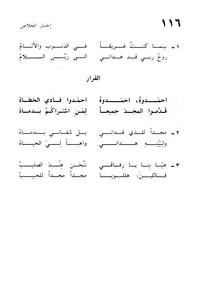 إختبار الخلاص
١١٦
١ - بينما كنتُ غريقاً في الذنوب والآثامْ
روحُ ربي قد هداني الى رئيس السلامْ
القرار
احمدوهُ، احمدوهُ احمدوا فادي الخطاه
قدّموا المجدَ جميعاً لِمَن اشتراكُم بدماه
٢ - مجداً للذي فداني بل شفاني بدماه
ولِبَيْتِهِ هداني واهباً لِيَ الحياه
٣ - هيّا بنا يا رفاقي نَنْحَنِ عِنْدَ الصليب
قائلينَ: هللويا مجداً مجداً للحبيب